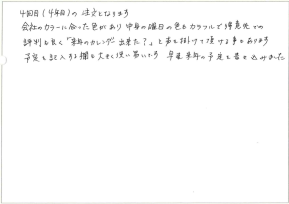 4回目(4年目)の注文となります
会社のカラーに合った色があり 中身の曜日の色もカラフルで得意先での
評判も良く「来年のカレンダー出来た?」と声を掛けて頂ける事もあります
予定を記入する欄も大きく使い易いため 早速来年の予定を書き込みました